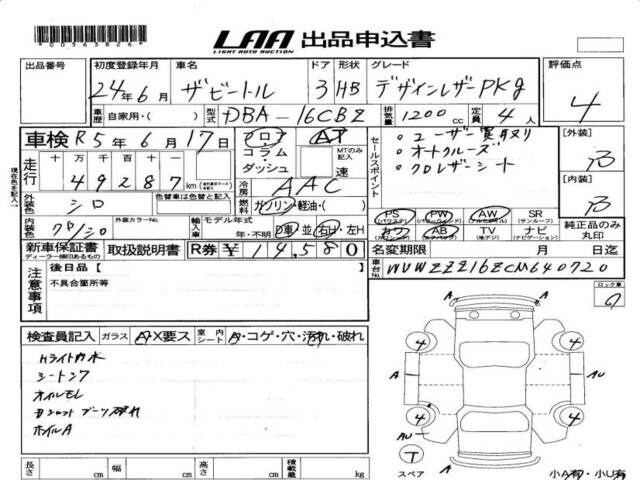 *0056382６*
LAA 出品申込書
LIGHT AUTO AUCTION
出品番号 初度登録年月 車名 ドア 形状 グレード 評価点
24年6月 ザビートル 3 HB デザインレザーPKg 4
車歴 自家用・( ) 型式 DBA-16CBZ 排気量 1200cc 定員 4人
車検 R5年6月17日 フロア AT セールスポイント ・ユーザー買取リ [外装] B
コラム MTのみ記入 ・オートクルーズ
ダッシュ 速 ・クロレザーシート
現在色を記入
走行 十万千百十一 49287km 冷房 AAC [内装] B
外装色 シロ 色替車は色替と記入 燃料 ガソリン・軽油・( )
内装色 クロ/シロ 外装カラーNo. 輸入車 モデル年式 年・不明 D車 並 右H・左H
PS (パワステ) PW (パワーウィンド) AW (アルミホイル) SR (サンルーフ)
カワ AB (エアバッグ) TV (地デジ) ナビ (ナビゲーション) 純正品のみ丸印
新車保証書 ディーラー捺印あるもの 取扱説明書 R券 ¥14,580 名変期限 月 日迄
注意事項 後日品【 】 車台No. WVWZZZ16ZCM640720
不具合箇所等
ロック車
検査員記入 ガラス A・X要ス 室内シート A・コゲ・穴・汚れ・破れ
シートシワ
オイルモレ
ホイルA
A
4 4
A AU
4 4
AU
T
スペア
A
長さ cm 幅 cm 高さ cm 積載量 kg 小A有・小U有